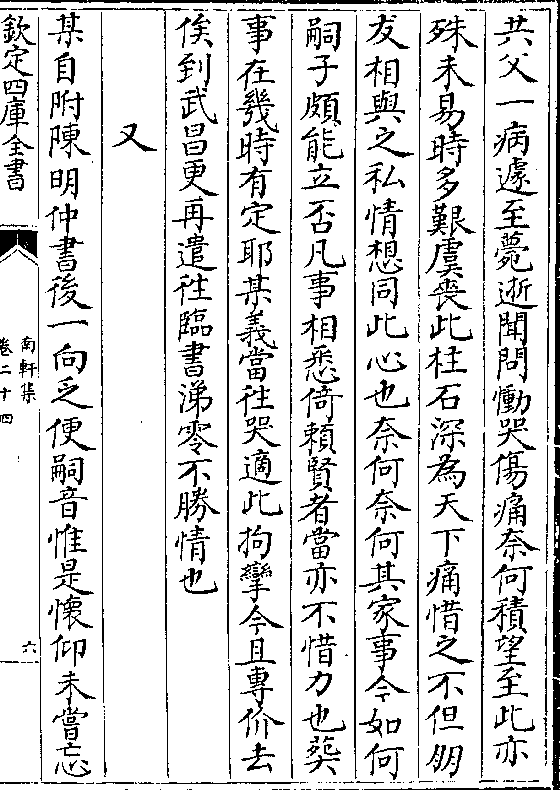 共父一病遽至薨逝聞問慟哭傷痛奈何積望至此亦
殊未易時多艱虞喪此柱石深為天下痛惜之不但朋
友相與之私情想同此心也奈何奈何其家事今如何
嗣子頗能立否凡事相悉倚賴賢者當亦不惜力也葬
事在幾時有定耶某義當往哭適此拘攣今且專价去
俟到武昌更再遣往臨書涕零不勝情也
又
某自附陳明仲書後一向乏便嗣音惟是懷仰未嘗忘
欽定四庫全書
南軒集
卷二十四
六